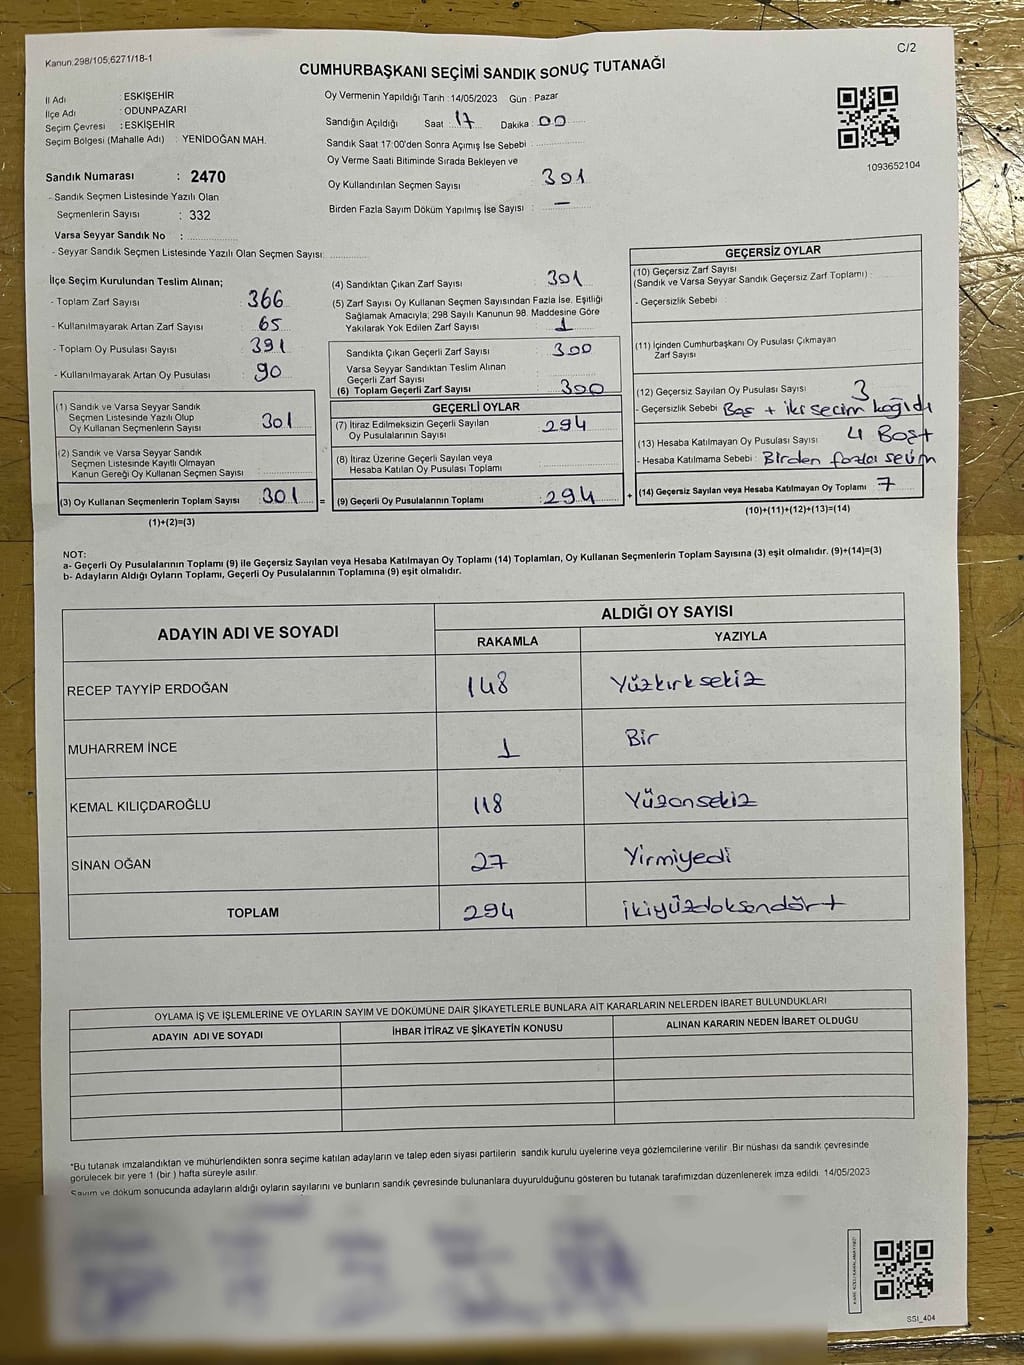 Kanun.298/105,6271/18-1
C/2
CUMHURBAŞKANI SEÇİMİ SANDIK SONUÇ TUTANAĞI
İl Adı : ESKİŞEHİR
İlçe Adı : ODUNPAZARI
Seçim Çevresi : ESKİŞEHİR
Seçim Bölgesi (Mahalle Adı) : YENİDOĞAN MAH.
Sandık Numarası : 2470
- Sandık Seçmen Listesinde Yazılı Olan
Seçmenlerin Sayısı : 332
Varsa Seyyar Sandık No :
- Seyyar Sandık Seçmen Listesinde Yazılı Olan Seçmen Sayısı:
Oy Vermenin Yapıldığı Tarih : 14/05/2023 Gün : Pazar
Sandığın Açıldığı Saat : 17 Dakika : 00
Sandık Saat 17:00'den Sonra Açımış İse Sebebi :
Oy Verme Saati Bitiminde Sırada Bekleyen ve
Oy Kullandırılan Seçmen Sayısı 301
Birden Fazla Sayım Döküm Yapılmış İse Sayısı : —
1093652104
İlçe Seçim Kurulundan Teslim Alınan;
- Toplam Zarf Sayısı 366
- Kullanılmayarak Artan Zarf Sayısı 65
- Toplam Oy Pusulası Sayısı 391
- Kullanılmayarak Artan Oy Pusulası 90
(1) Sandık ve Varsa Seyyar Sandık
Seçmen Listesinde Yazılı Olup
Oy Kullanan Seçmenlerin Sayısı 301
(2) Sandık ve Varsa Seyyar Sandık
Seçmen Listesinde Kayıtlı Olmayan
Kanun Gereği Oy Kullanan Seçmen Sayısı
(3) Oy Kullanan Seçmenlerin Toplam Sayısı 301 =
(1)+(2)=(3)
(4) Sandıktan Çıkan Zarf Sayısı 301
(5) Zarf Sayısı Oy Kullanan Seçmen Sayısından Fazla İse, Eşitliği
Sağlamak Amacıyla; 298 Sayılı Kanunun 98. Maddesine Göre
Yakılarak Yok Edilen Zarf Sayısı 1
Sandıkta Çıkan Geçerli Zarf Sayısı 300
Varsa Seyyar Sandıktan Teslim Alınan
Geçerli Zarf Sayısı
(6) Toplam Geçerli Zarf Sayısı 300
GEÇERLİ OYLAR
(7) İtiraz Edilmeksizin Geçerli Sayılan
Oy Pusulalarının Sayısı 294
(8) İtiraz Üzerine Geçerli Sayılan veya
Hesaba Katılan Oy Pusulası Toplamı
(9) Geçerli Oy Pusulalarının Toplamı : 294 +
GEÇERSİZ OYLAR
(10) Geçersiz Zarf Sayısı
(Sandık ve Varsa Seyyar Sandık Geçersiz Zarf Toplamı) :
- Geçersizlik Sebebi :
(11) İçinden Cumhurbaşkanı Oy Pusulası Çıkmayan
Zarf Sayısı
(12) Geçersiz Sayılan Oy Pusulası Sayısı : 3
- Geçersizlik Sebebi Boş + iki seçim kağıdı
(13) Hesaba Katılmayan Oy Pusulası Sayısı 4 Boş+
- Hesaba Katılmama Sebebi : Birden fazla seçim
(14) Geçersiz Sayılan veya Hesaba Katılmayan Oy Toplamı 7
(10)+(11)+(12)+(13)=(14)
NOT:
a- Geçerli Oy Pusulalarının Toplamı (9) ile Geçersiz Sayılan veya Hesaba Katılmayan Oy Toplamı (14) Toplamları, Oy Kullanan Seçmenlerin Toplam Sayısına (3) eşit olmalıdır. (9)+(14)=(3)
b- Adayların Aldığı Oyların Toplamı, Geçerli Oy Pusulalarının Toplamına (9) eşit olmalıdır.
ADAYIN ADI VE SOYADI
ALDIĞI OY SAYISI
RAKAMLA YAZIYLA
RECEP TAYYİP ERDOĞAN 148 Yüzkırksekiz
MUHARREM İNCE 1 Bir
KEMAL KILIÇDAROĞLU 118 Yüzonsekiz
SİNAN OĞAN 27 Yirmiyedi
TOPLAM 294 ikiyüzdoksandört
OYLAMA İŞ VE İŞLEMLERİNE VE OYLARIN SAYIM VE DÖKÜMÜNE DAİR ŞİKAYETLERLE BUNLARA AİT KARARLARIN NELERDEN İBARET BULUNDUKLARI
ADAYIN ADI VE SOYADI İHBAR İTİRAZ VE ŞİKAYETİN KONUSU ALINAN KARARIN NEDEN İBARET OLDUĞU
*Bu tutanak imzalandıktan ve mühürlendikten sonra seçime katılan adayların ve talep eden siyasi partilerin sandık kurulu üyelerine veya gözlemcilerine verilir. Bir nüshası da sandık çevresinde
görülecek bir yere 1 (bir) hafta süreyle asılır.
Sayım ve döküm sonucunda adayların aldığı oyların sayılarını ve bunların sandık çevresinde bulunanlara duyurulduğunu gösteren bu tutanak tarafımızdan düzenlenerek imza edildi. 14/05/2023
SSI_404